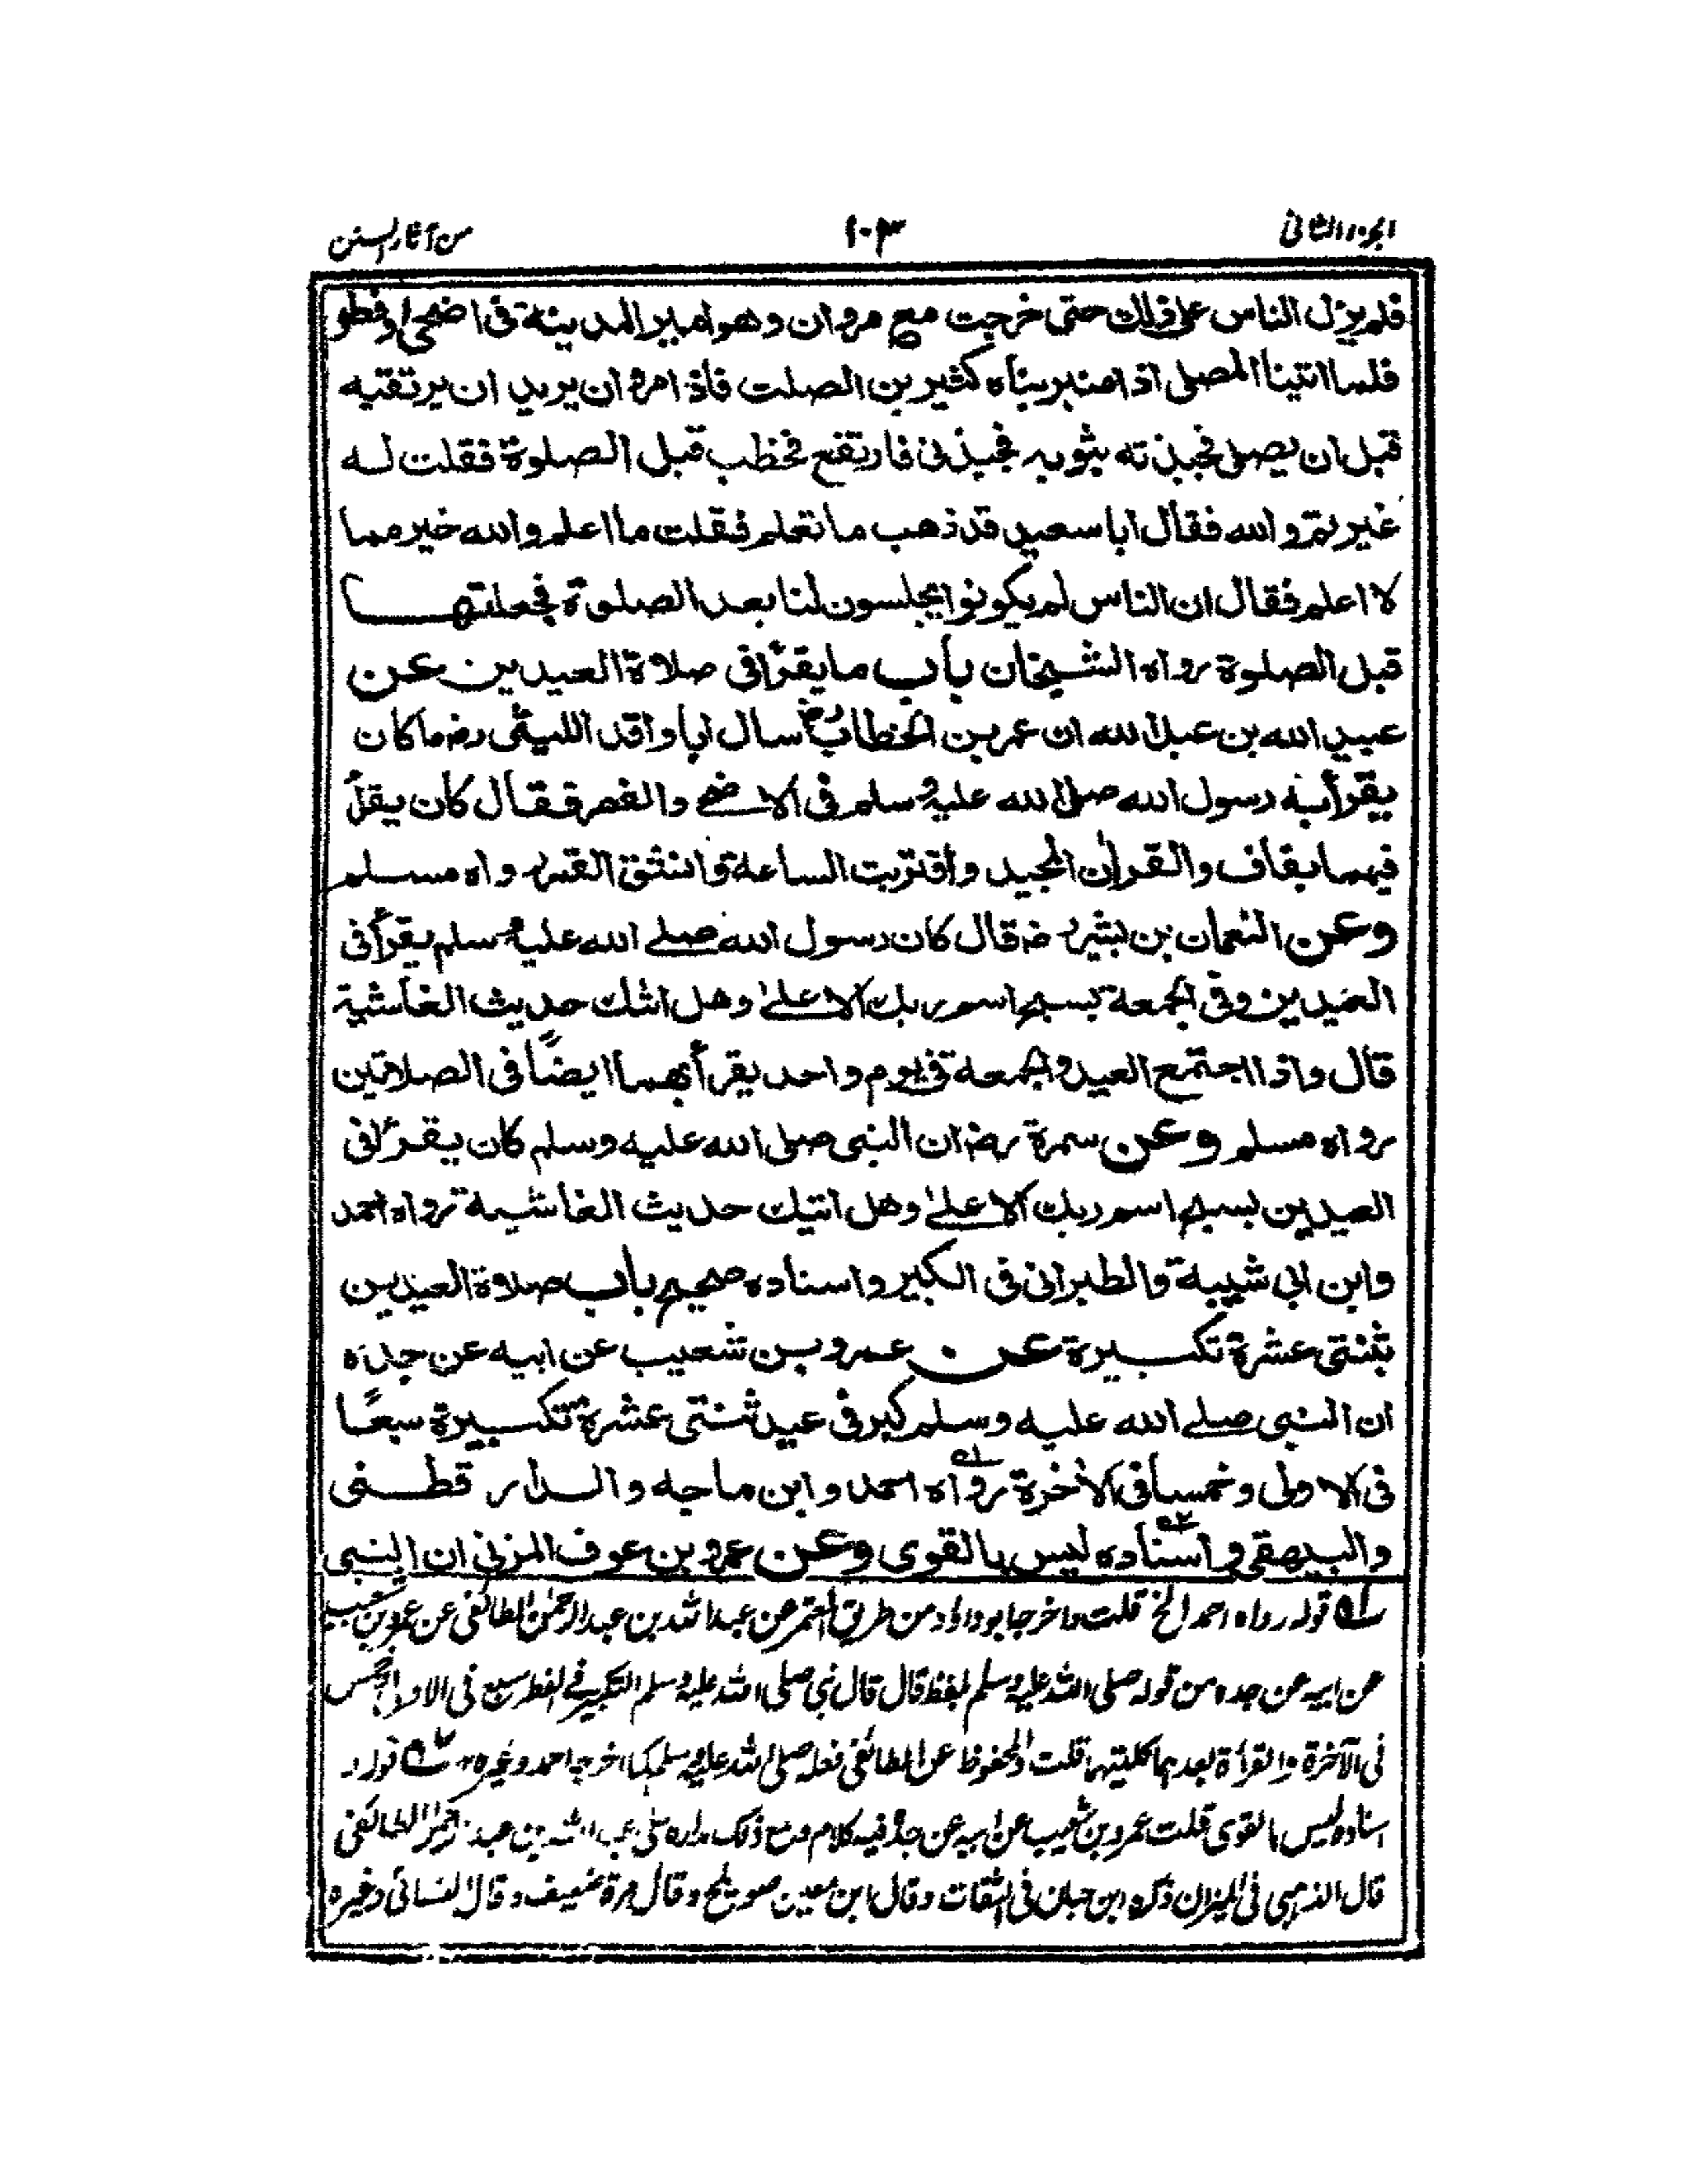 الجزء الثانى
١٠٣
من آثار السنن
فلم يزل الناس على ذلك حتى خرجت مع مروان وهو امير المدينة فى اضحى او فطر
فلما اتينا المصلى اذا منبر بناه كثير بن الصلت فاذا مروان يريد ان يرتقيه
قبل ان يصلى فجبذته بثوبه فجبذنى فارتفع فخطب قبل الصلوة فقلت له
غيرتم والله فقال ابا سعيد قد ذهب ما تعلم فقلت ما اعلم والله خير مما
لا اعلم فقال ان الناس لم يكونوا يجلسون لنا بعد الصلوة فجعلتها
قبل الصلوة رواه الشيخان باب ما يقرأ فى صلاة العيدين عن
عبيد الله بن عبد الله ان عمر بن الخطاب رض سال ابا واقد الليثى رض ما كان
يقرأ به رسول الله صلى الله عليه وسلم فى الاضحى والفطر فقال كان يقرأ
فيهما بقاف والقران المجيد واقتربت الساعة وانشق القمر رواه مسلم
وعن النعمان بن بشير رض قال كان رسول الله صلى الله عليه وسلم يقرأ فى
العيدين وفى الجمعة بسبح اسم ربك الاعلى وهل اتٰك حديث الغاشية
قال واذا اجتمع العيد والجمعة فى يوم واحد يقرأ بهما ايضًا فى الصلاتين
رواه مسلم وعن سمرة رض ان النبى صلى الله عليه وسلم كان يقرأ فى
العيدين بسبح اسم ربك الاعلى وهل اتيك حديث الغاشية رواه احمد
وابن ابى شيبة والطبرانى فى الكبير واسناده صحيح باب صلاة العيدين
بثنتى عشرة تكبيرة عن عمرو بن شعيب عن ابيه عن جده
ان النبى صلى الله عليه وسلم كبر فى عيد ثنتى عشرة تكبيرة سبعًا
فى الاولى وخمسا فى الاخرة رواه ١ احمد وابن ماجه والدار قطنى
والبيهقى واسناده ٢ ليس بالقوى وعن عمرو بن عوف المزنى ان النبى
١ قوله رواه احمد الخ قلت واخرجه ابو داؤد من طريق المعتمر عن عبد الله بن عبد الرحمٰن الطائفى عن عمرو بن شعيب
عن ابيه عن جده من قوله صلى الله عليه وسلم بلفظ قال قال نبى صلى الله عليه وسلم التكبير فى الفطر سبع فى الاولى وخمس
فى الآخرة والقرأة بعدهما كلتيهما قلت والمحفوظ عن الطائفى فعله صلى الله عليه وسلم كما اخرجه احمد وغيره ٢ قوله و
اسناده ليس بالقوى قلت عمرو بن شعيب عن ابيه عن جده فيه كلام ومع ذلك مداره على عبد الله بن عبد الرحمٰن الطائفى
قال الذهبى فى الميزان ذكره ابن حبان فى الثقات وقال ابن معين صويلح وقال مرة ضعيف وقال النسائى وغيره